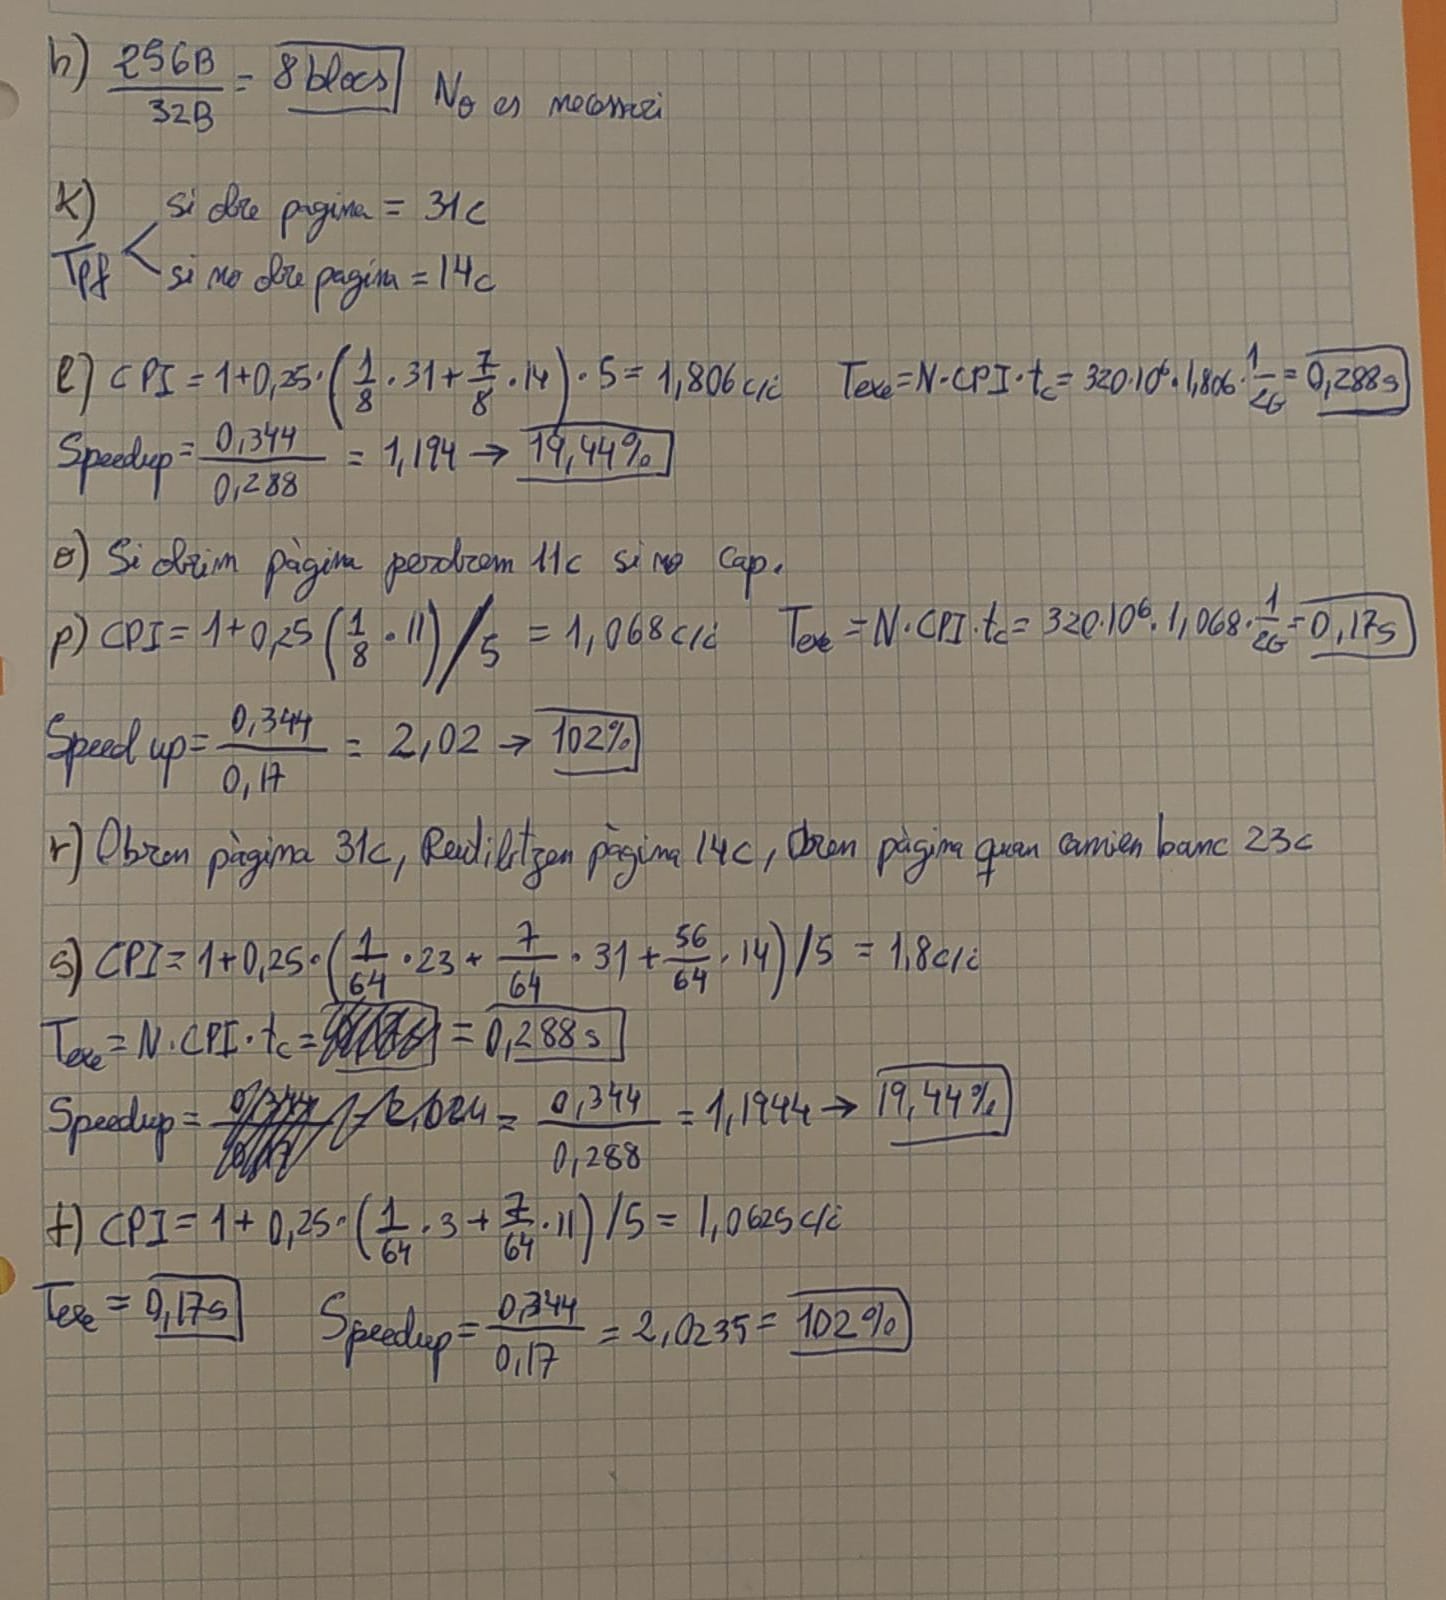 h) 256B / 32B = 8 blocs No es necessari
k) Tpf < si obre pagina = 31c
si no obre pagina = 14c
l) CPI = 1+0,25·(1/8·31+7/8·14)·5 = 1,806 c/i Texe = N·CPI·tc = 320·10⁶·1,806·1/2G = 0,288s
Speedup = 0,344/0,288 = 1,194 → 19,44%
o) Si obrim pàgina perdrem 11c si no cap.
p) CPI = 1+0,25(1/8·11)/5 = 1,068 c/i Texe = N·CPI·tc = 320·10⁶·1,068·1/2G = 0,17s
Speed up = 0,344/0,17 = 2,02 → 102%
r) Obren pàgina 31c, Reutilitzen pàgina 14c, Obren pàgina quan canvien banc 23c
s) CPI = 1+0,25·(1/64·23+7/64·31+56/64·14)/5 = 1,8 c/i
Texe = N·CPI·tc = = 0,288s
Speedup = = 0,344/0,288 = 1,1944 → 19,44%
t) CPI = 1+0,25·(1/64·3+7/64·11)/5 = 1,0625 c/i
Texe = 0,17s Speedup = 0,344/0,17 = 2,0235 = 102%